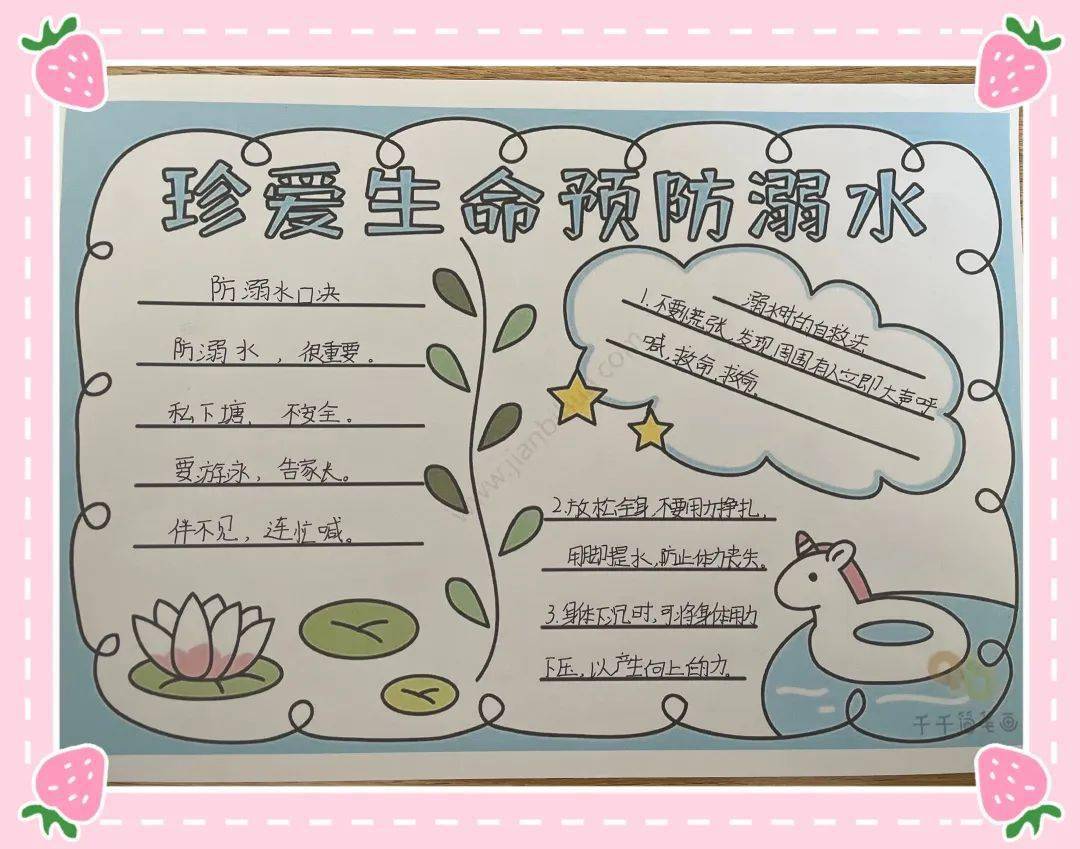 珍爱生命预防溺水
防溺水口决
防溺水，很重要。
私下塘，不安全。
要游泳，告家长。
伴不见，连忙喊。
溺水时的自救法
1.不要慌张,发现周围有人立即大声呼
喊,救命,救命,
2.放松全身,不要用力挣扎,
用脚提水,防止体力丧失。
3.身体下沉时,可将身体用力
下压,以产生向上的力。
千千简笔画